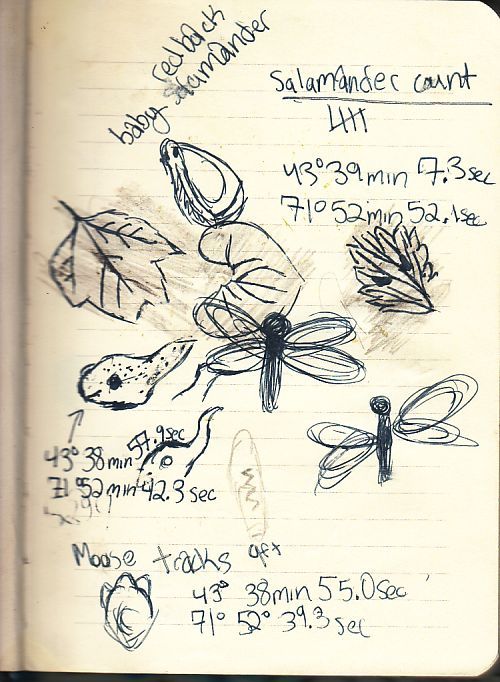 baby redback
salamander
Salamander count
43° 39 min 7.3 sec
71° 52 min 52.1 sec
57.9 sec
43° 38 min
71° 52 min 42.3 sec
Moose tracks
43° 38 min 55.0 sec
71° 52° 39.3 sec